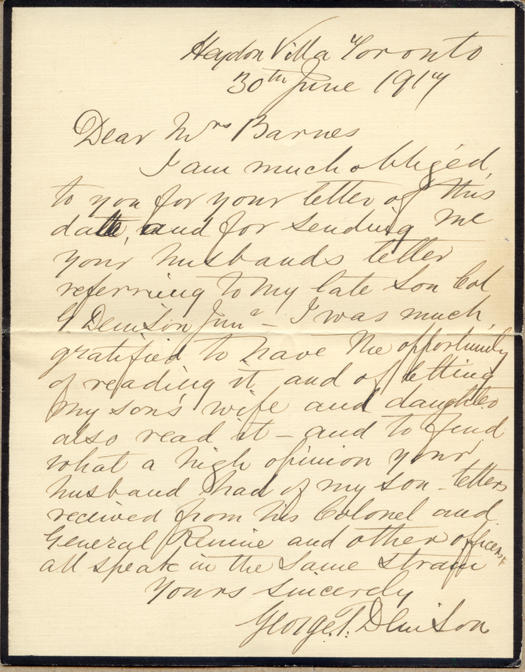 Heydon Villa Toronto
30th June 1917
Dear Mrs Barnes
I am much obliged
to you for your letter of this
date, and for sending me
your husbands letter
referring to my late son Col
G Denison Junr - I was much
gratified to have the opportunity
of reading it and of letting
my son's wife and daughter
also read it - and to find
what a high opinion your
husband had of my son - letters
received from his Colonel and
General Rennie and other officers
all speak in the same strain
Yours sincerely
George T. Denison